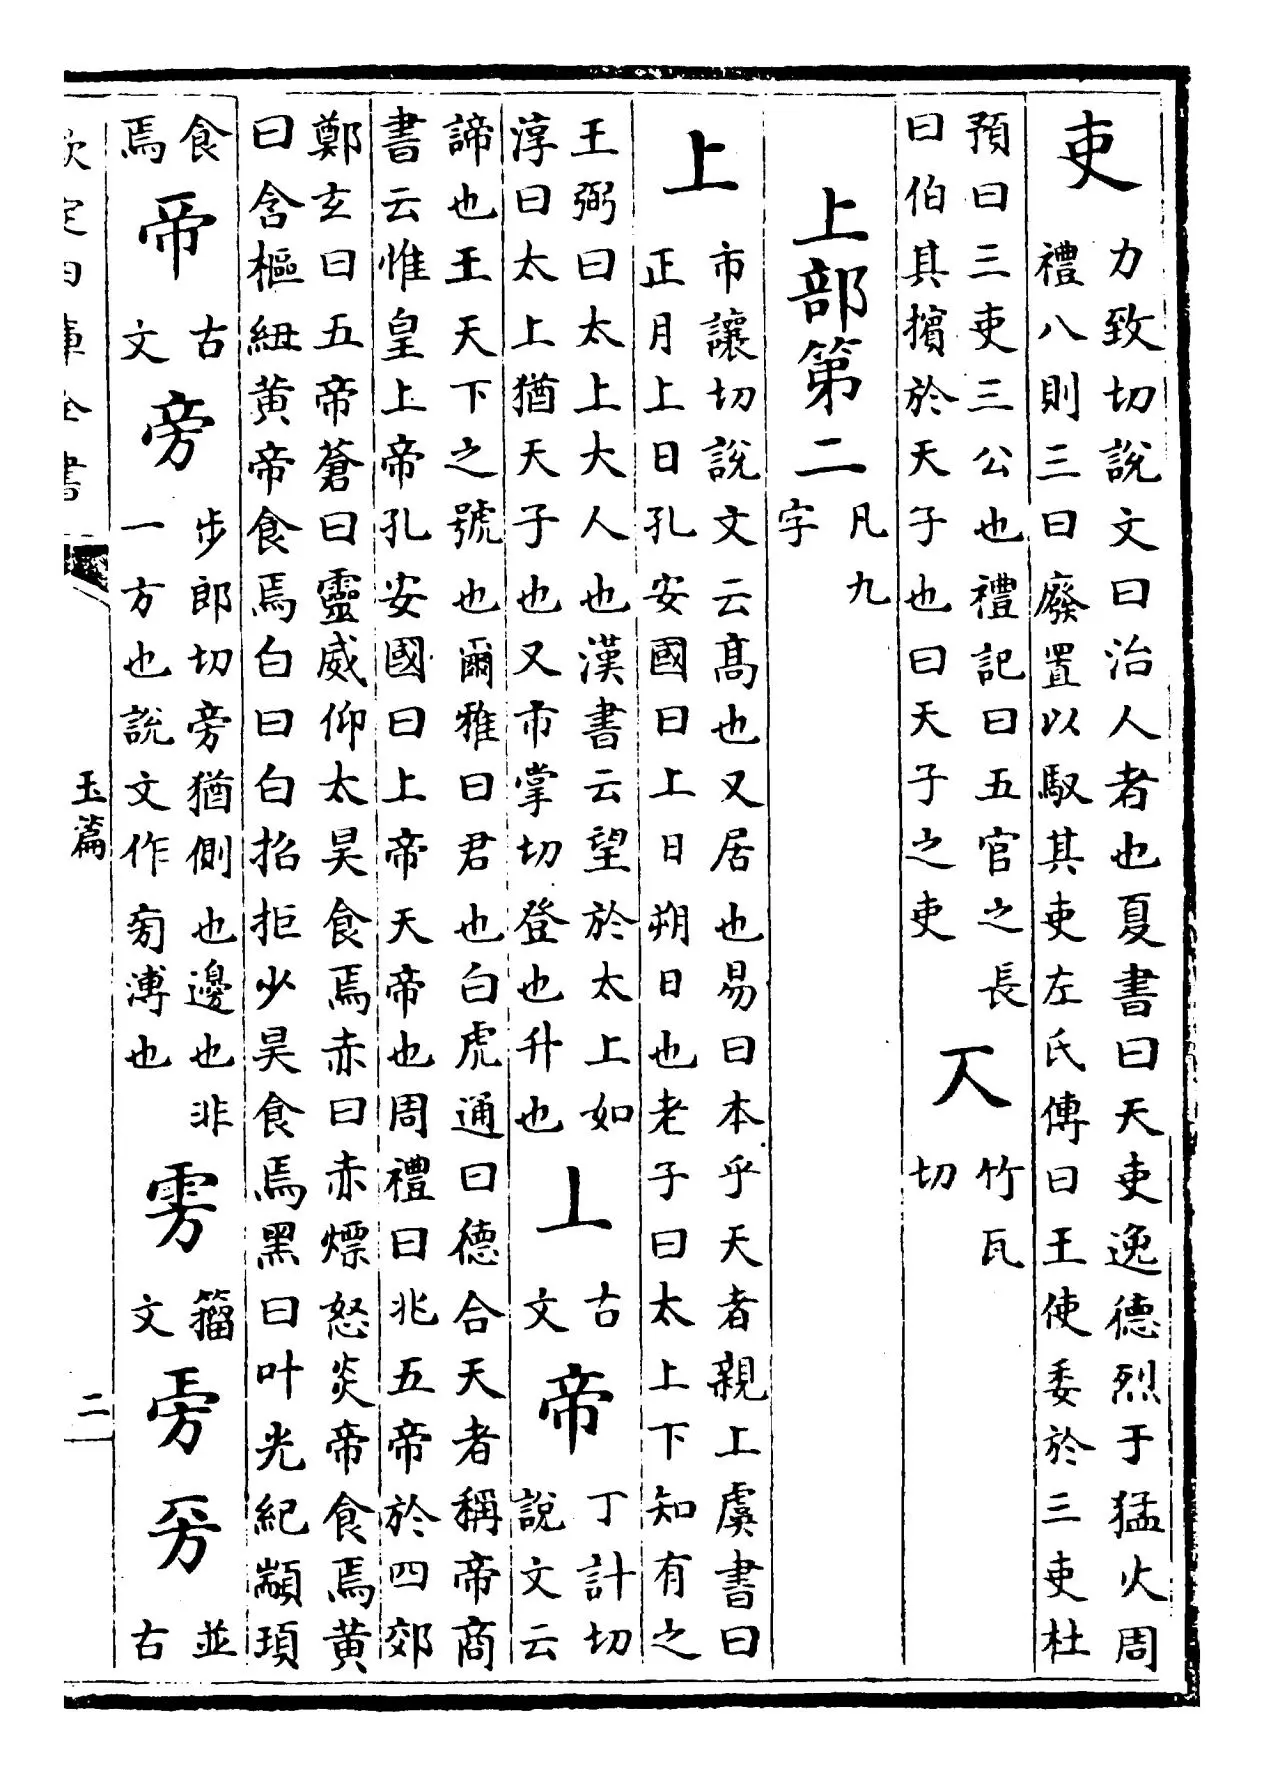 吏力致切說文曰治人者也夏書曰天吏逸德烈于猛火周
禮八則三曰廢置以馭其吏左氏傳曰王使委於三吏杜
預曰三吏三公也禮記曰五官之長
曰伯其擯於天子也曰天子之吏
竹瓦切
上部第二凡九字
上市讓切說文云髙也又居也易曰本乎天者親上虞書曰
正月上日孔安國曰上日朔日也老子曰太上下知有之
王弼曰太上大人也漢書云望於太上如
淳曰太上猶天子也又市掌切登也升也
丄古文
帝丁計切
說文云
諦也王天下之號也爾雅曰君也白虎通曰德合天者稱帝商
書云惟皇上帝孔安國曰上帝天帝也周禮曰兆五帝於四郊
鄭玄曰五帝蒼曰靈威仰太昊食焉赤曰赤熛怒炎帝食焉黃
曰含樞紐黃帝食焉白曰白招拒少昊食焉黑曰叶光紀顓頊
食焉
古文
旁步郎切旁猶側也邊也非
一方也說文作㫄溥也
雱籀文
並古
欽定四庫全書
玉篇
二